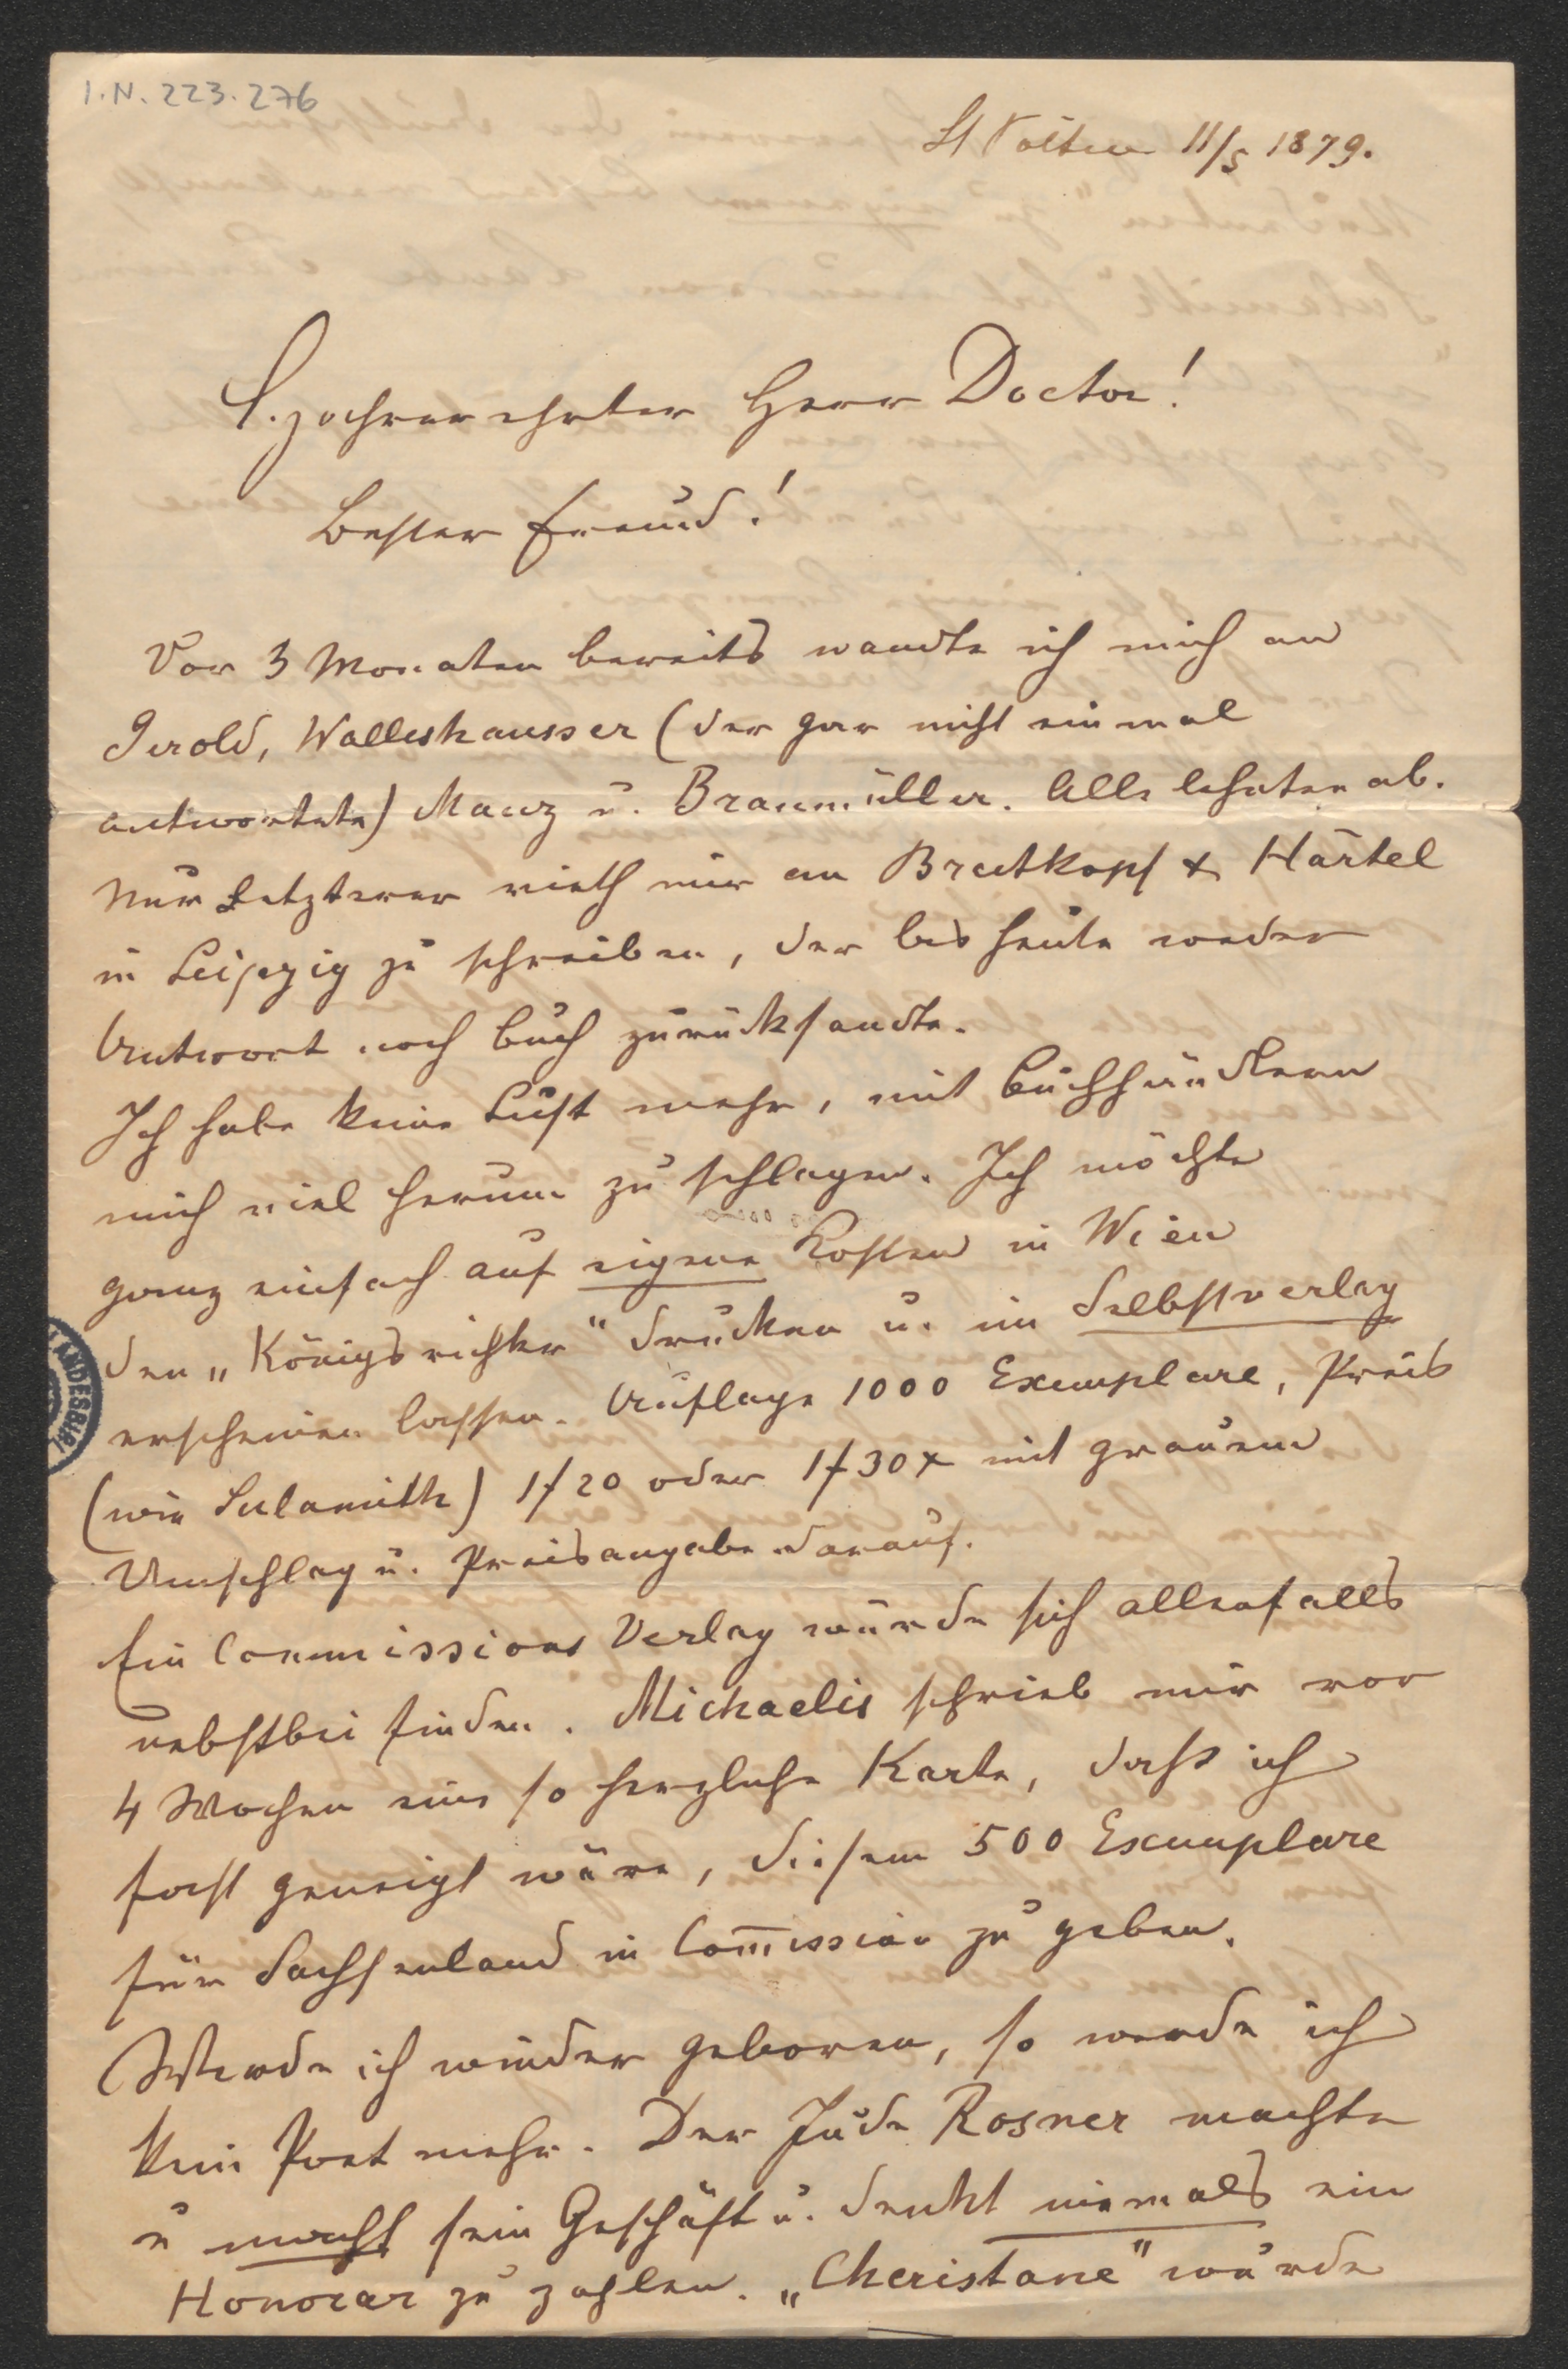 I.N. 223.276
St Pölten 11/5 1879.
Hochverehrter Herr Doctor!
Bester Freund!
Vor 3 Monaten bereits wandte ich mich an
Gerold, Wallishausser (der gar nicht einmal
antwortete) Manz u. Braumüller. Alle lehnten ab.
Nur Letzterer rieth mir an Breitkopf & Härtel
in Leipzig zu schreiben, der bis heute weder
Antwort noch Buch zurücksandte.
Ich habe keine Lust mehr, mit Buchhändlern
mich viel herum zu schlagen. Ich möchte
ganz einfach auf eigene Kosten in Wien
den „Königsrichter" drucken u. im Selbstverlag
erscheinen lassen. Auflage 1000 Exemplare, Preis
(wie Sulamith) 1f 20 oder 1f 30x mit grauem
Umschlag u. Preisangabe darauf.
Ein Commissions Verlag würde sich allenfalls
nebstbei finden. Michaelis schrieb mir vor
4 Wochen eine so herzliche Karte, dass ich
fast geneigt wäre, diesem 500 Exemplare
für Sachsenland in Com̅ission zu geben.
Werde ich wieder geboren, so werde ich
kein Poet mehr. Der Jude Rosner machte
u macht sein Geschäft u. denkt niemals ein
Honorar zu zahlen. „Cheristane" wurde
LANDESBIBL